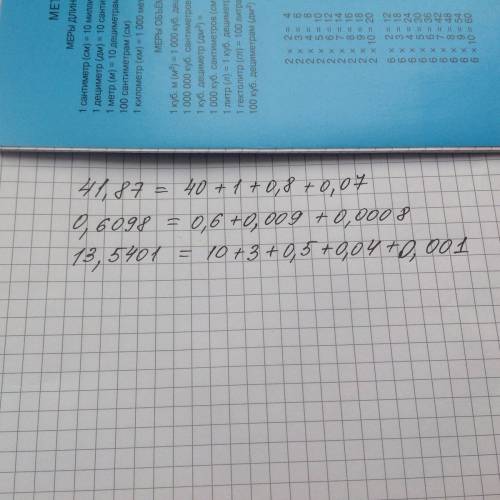 МЕТ
МЕРЫ ДЛИН
1 сантиметр (см) = 10 милли
1 дециметр (дм) = 10 санти
1 метр (м) = 10 дециметрам
100 сантиметрам (см)
1 километр (км) = 1 000 мет
МЕРЫ ОБЪЁМ
1 куб. м (м³) = 1 000 куб. деци
1 000 000 куб. сантиметров
1 куб. дециметр (дм³) =
1 000 куб. сантиметров (см
1 литр (л) = 1 куб. дециметр
1 гектолитр (гл) = 100 литра
100 куб. дециметрам (дм³)
2 × 2 = 4
2 × 3 = 6
2 × 4 = 8
2 × 5 = 10
2 × 6 = 12
2 × 7 = 14
2 × 8 = 16
2 × 9 = 18
2 × 10 = 20
6 × 2 = 12
6 × 3 = 18
6 × 4 = 24
6 × 5 = 30
6 × 6 = 36
6 × 7 = 42
6 × 8 = 48
6 × 9 = 54
6 × 10 = 60
41,87 = 40 + 1 + 0,8 + 0,07
0,6098 = 0,6 + 0,009 + 0,0008
13,5401 = 10 + 3 + 0,5 + 0,04 + 0,001